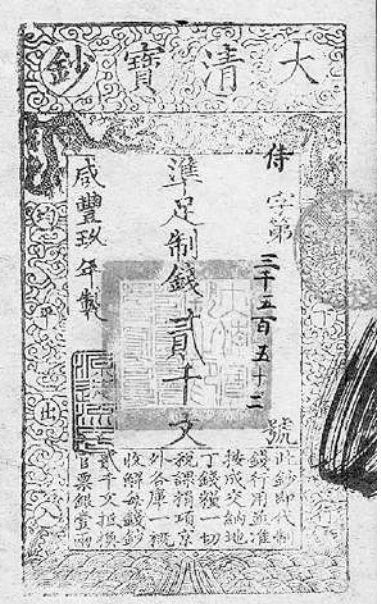 大清寶鈔
侍字第三千五百五十二號
準足制錢貳千文
咸豐玖年製
均平出入
此鈔即代制
錢行用並准
按成交納地
丁錢糧一切
稅課捐項京
外各庫一概
收解每錢鈔
貳千文抵換
官票銀壹兩